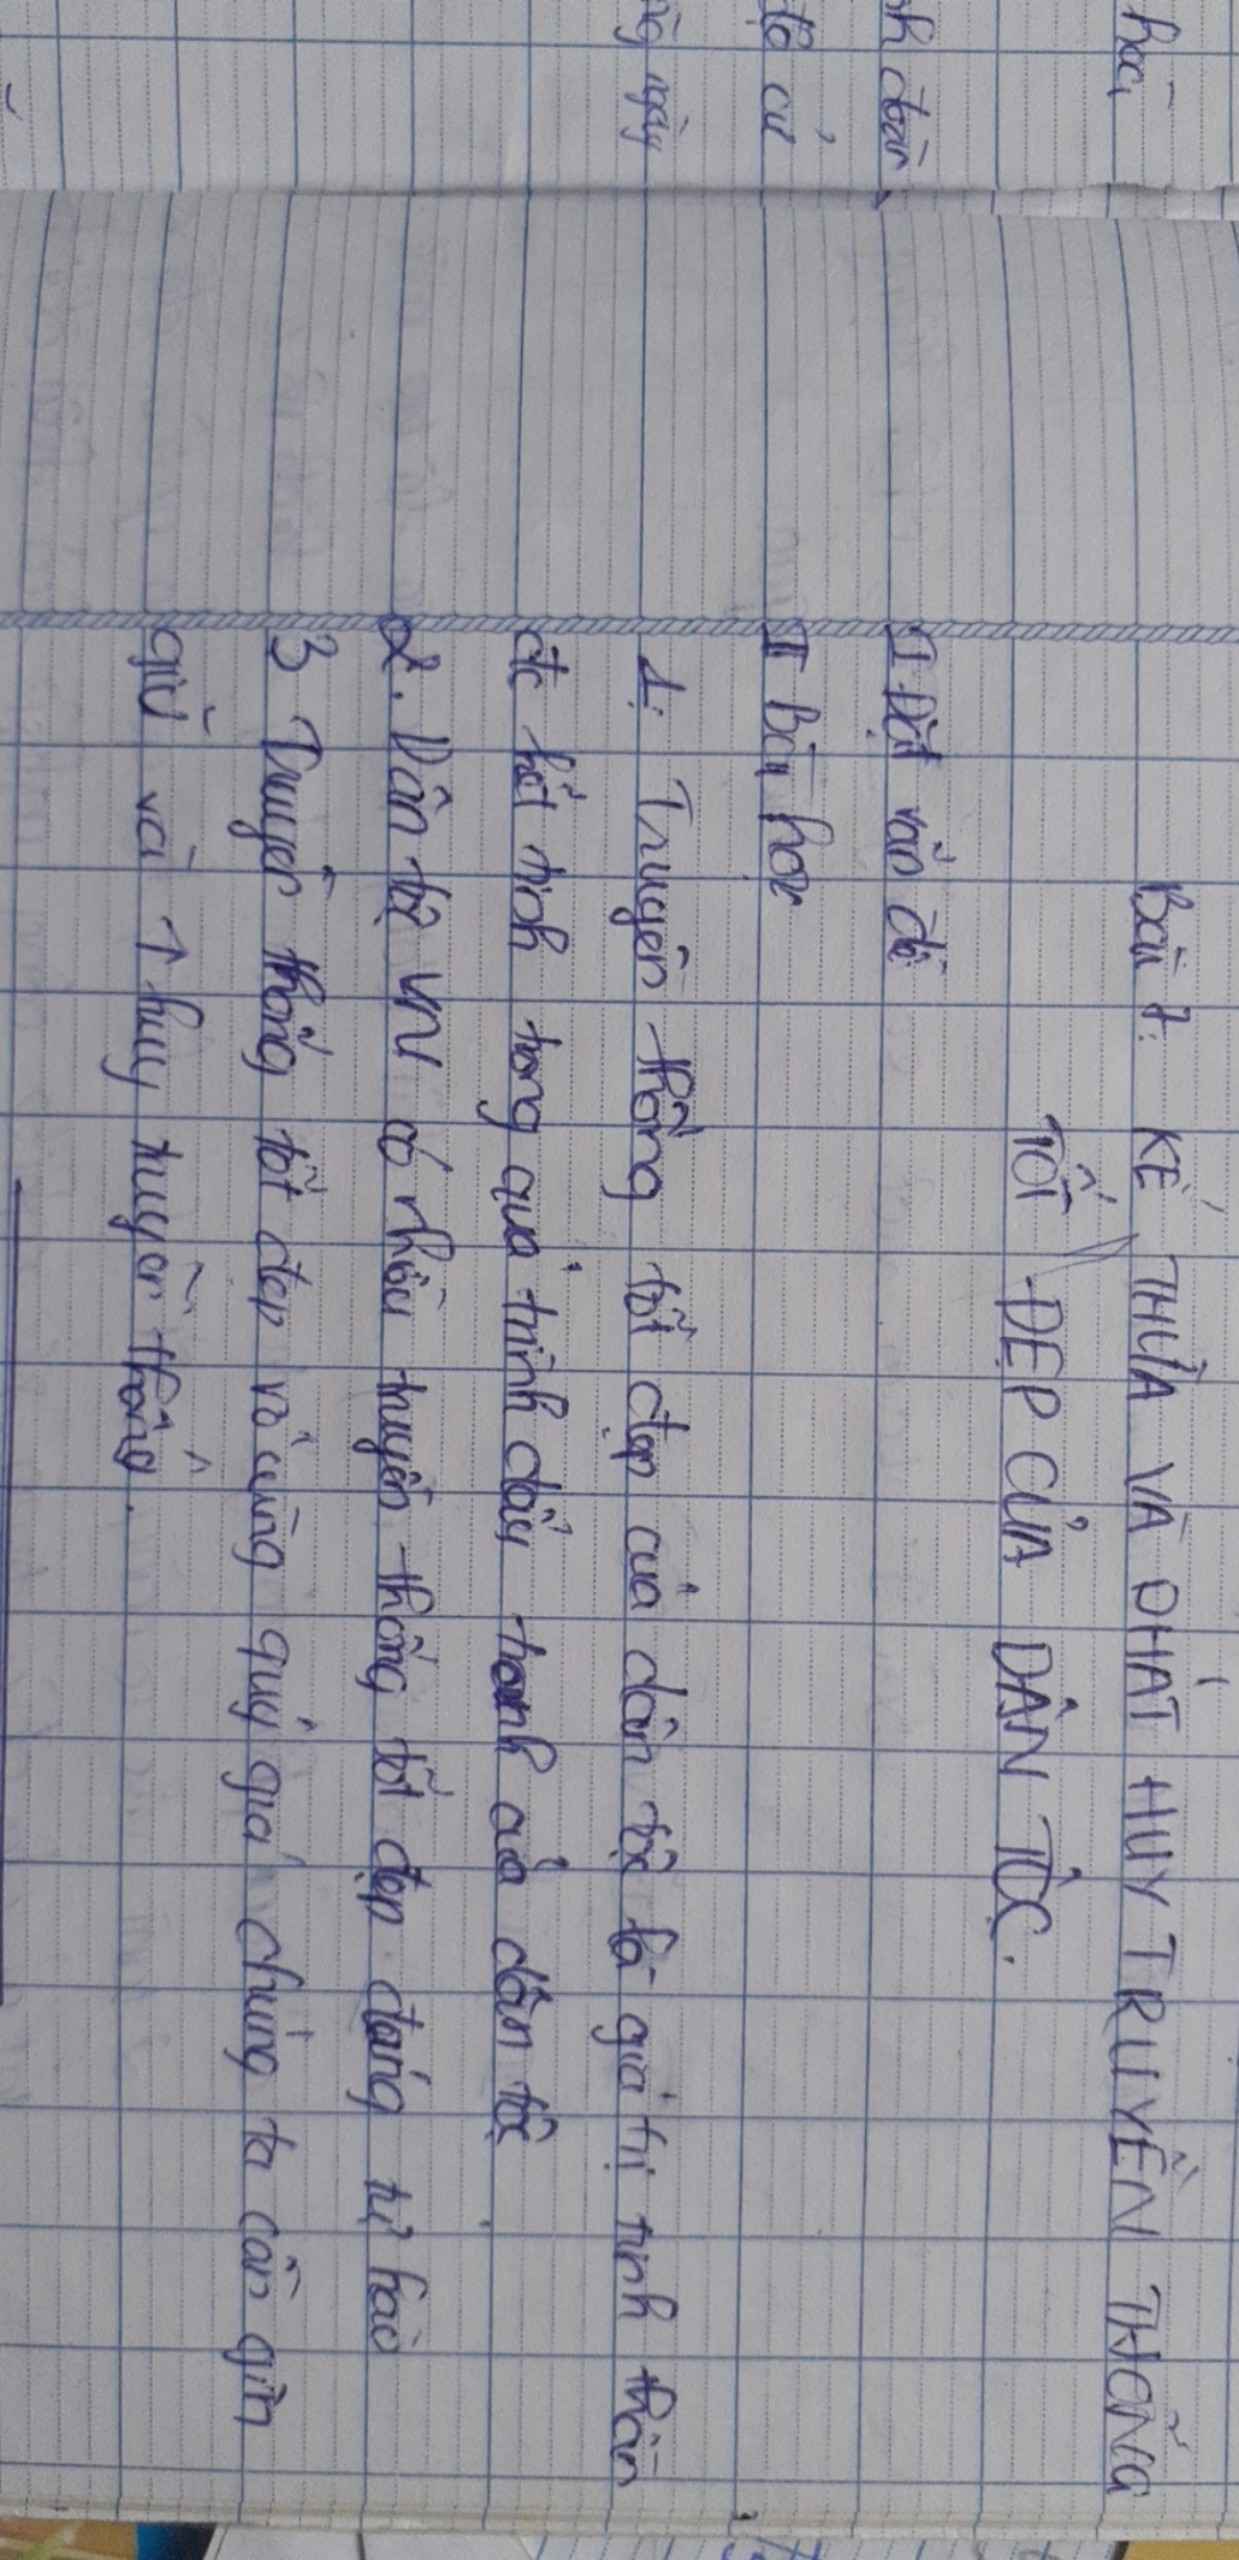 học
nh đoàn
đề cử
ng ngày
Bài 7: KẾ THỪA VÀ PHÁT HUY TRUYỀN THỐNG
TỐT ĐẸP CỦA DÂN TỘC.
I Đặt vấn đề
II Bài học
1: Truyền thống tốt đẹp của dân tộc là giá trị tinh thần
đc hết tình trong quá trình đấu tranh của dân tộc
2. Dân tộc VN có nhiều truyền thống tốt đẹp đáng tự hào
3 Truyền thống tốt đẹp vô cùng quý giá chúng ta cần giữ
giữ và ↑ huy truyền thống.